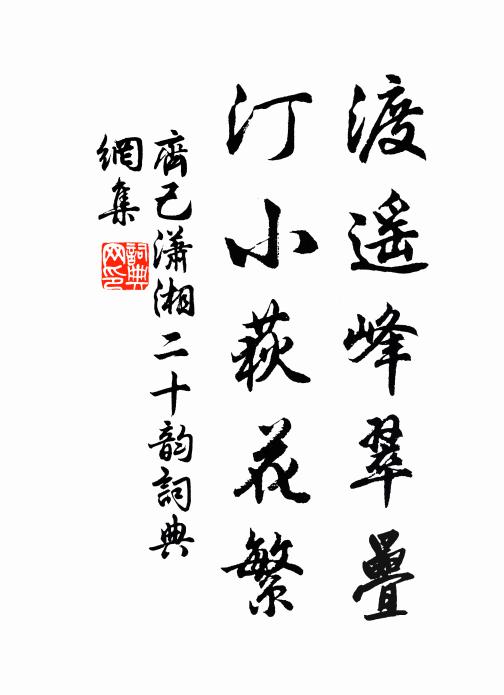 渡遥峰翠疊
汀小荻花繁
齊己瀟湘二十韵詞典
網集
詞典網印